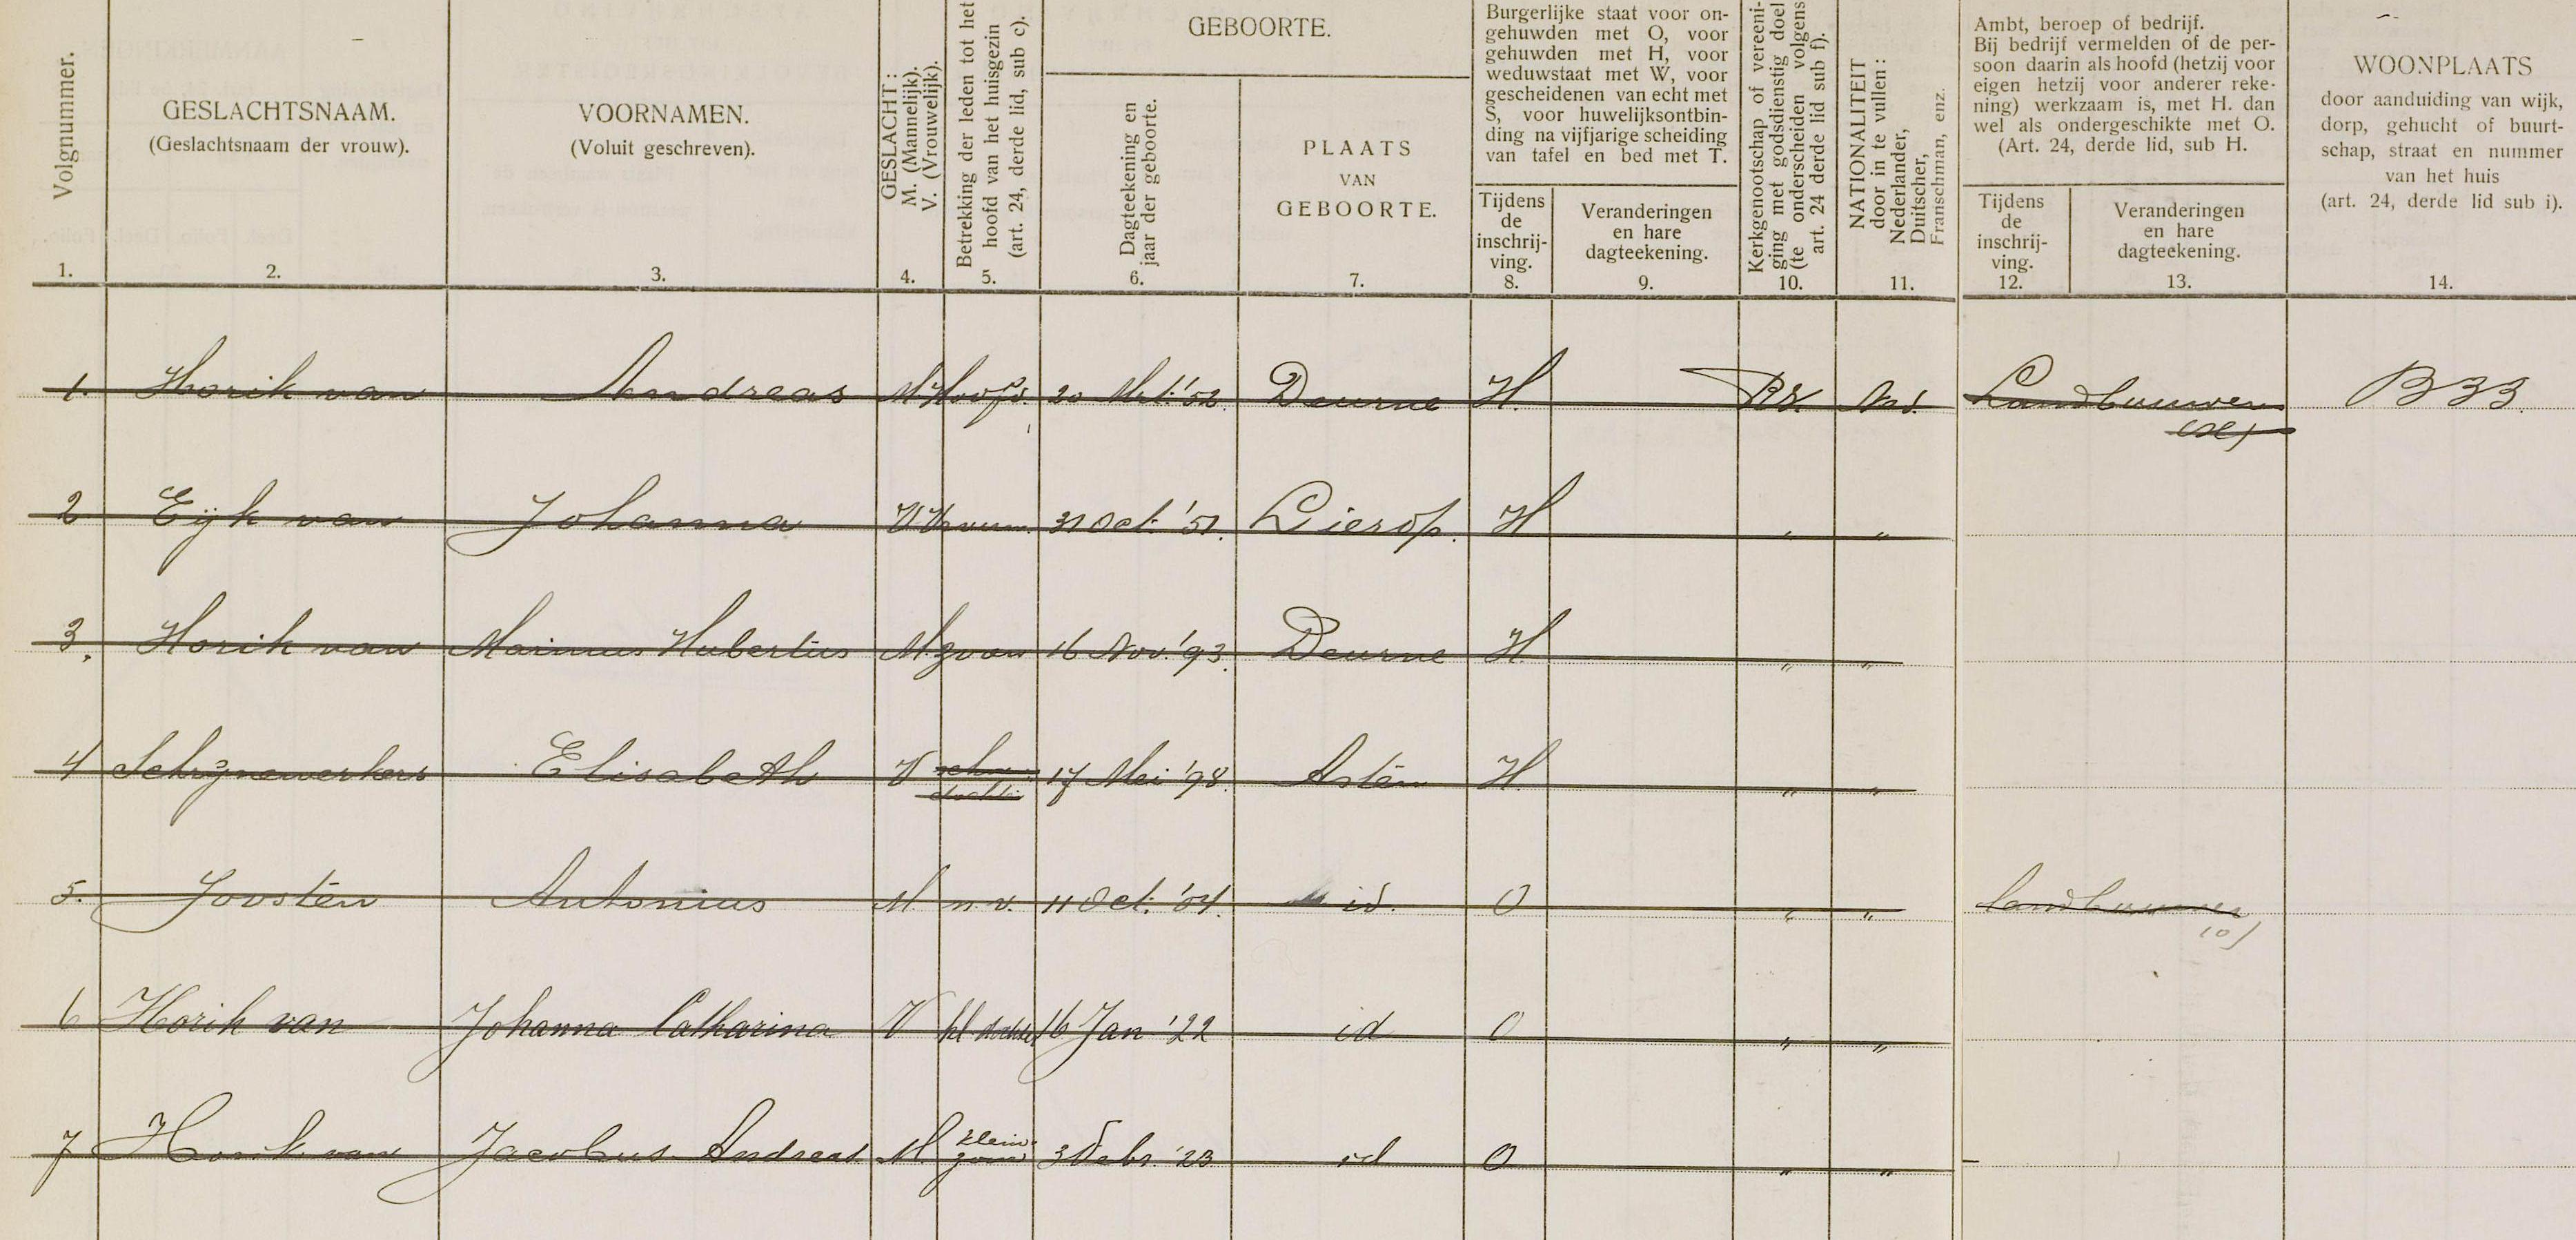 Volgnummer.
1.
GESLACHTSNAAM.
(Geslachtsnaam der vrouw).
2.
VOORNAMEN.
(Voluit geschreven).
3.
GESLACHT:
M. (Mannelijk).
V. (Vrouwelijk).
4.
Betrekking der leden tot het
hoofd van het huisgezin
(art. 24, derde lid, sub c).
5.
GEBOORTE.
Dagteekening en
jaar der geboorte.
6.
PLAATS
VAN
GEBOORTE.
7.
Burgerlijke staat voor on-
gehuwden met O, voor
gehuwden met H, voor
weduwstaat met W, voor
gescheidenen van echt met
S, voor huwelijksontbin-
ding na vijfjarige scheiding
van tafel en bed met T.
Tijdens
de
inschrij-
ving.
8.
Veranderingen
en hare
dagteekening.
9.
Kerkgenootschap of vereeni-
ging met godsdienstig doel
(te onderscheiden volgens
art. 24 derde lid sub f).
10.
NATIONALITEIT
door in te vullen:
Nederlander,
Duitscher,
Franschman, enz.
11.
Ambt, beroep of bedrijf.
Bij bedrijf vermelden of de per-
soon daarin als hoofd (hetzij voor
eigen hetzij voor anderer reke-
ning) werkzaam is, met H. dan
wel als ondergeschikte met O.
(Art. 24, derde lid, sub H.
Tijdens
de
inschrij-
ving.
12.
Veranderingen
en hare
dagteekening.
13.
WOONPLAATS
door aanduiding van wijk,
dorp, gehucht of buurt-
schap, straat en nummer
van het huis
(art. 24, derde lid sub i).
14.
1. Horik van Andreas M Hoofd. 20 Mrt. '52. Deurne H. RK. Ned. Landbouwer B 33.
(H)
2 Eijk van Johanna V Vrouw. 31 Oct. '51. Lierop. H " "
3. Horik van Marinus Hubertus M zoon 16 Nov. '93. Deurne H. " "
4 Schrijnewerkers Elisabeth V schoon 17 Mei '98. Asten H. " "
dochter
5. Joosten Antonius M. n.v. 11 Oct. '04. id. O " " landbouwer
(O)
6 Horik van Johanna Catharina V kl. dochter 16 Jan '22 id O " "
7 Horik van Jacobus Andreas M. klein- 3 Febr. '23 id O " " -
zoon